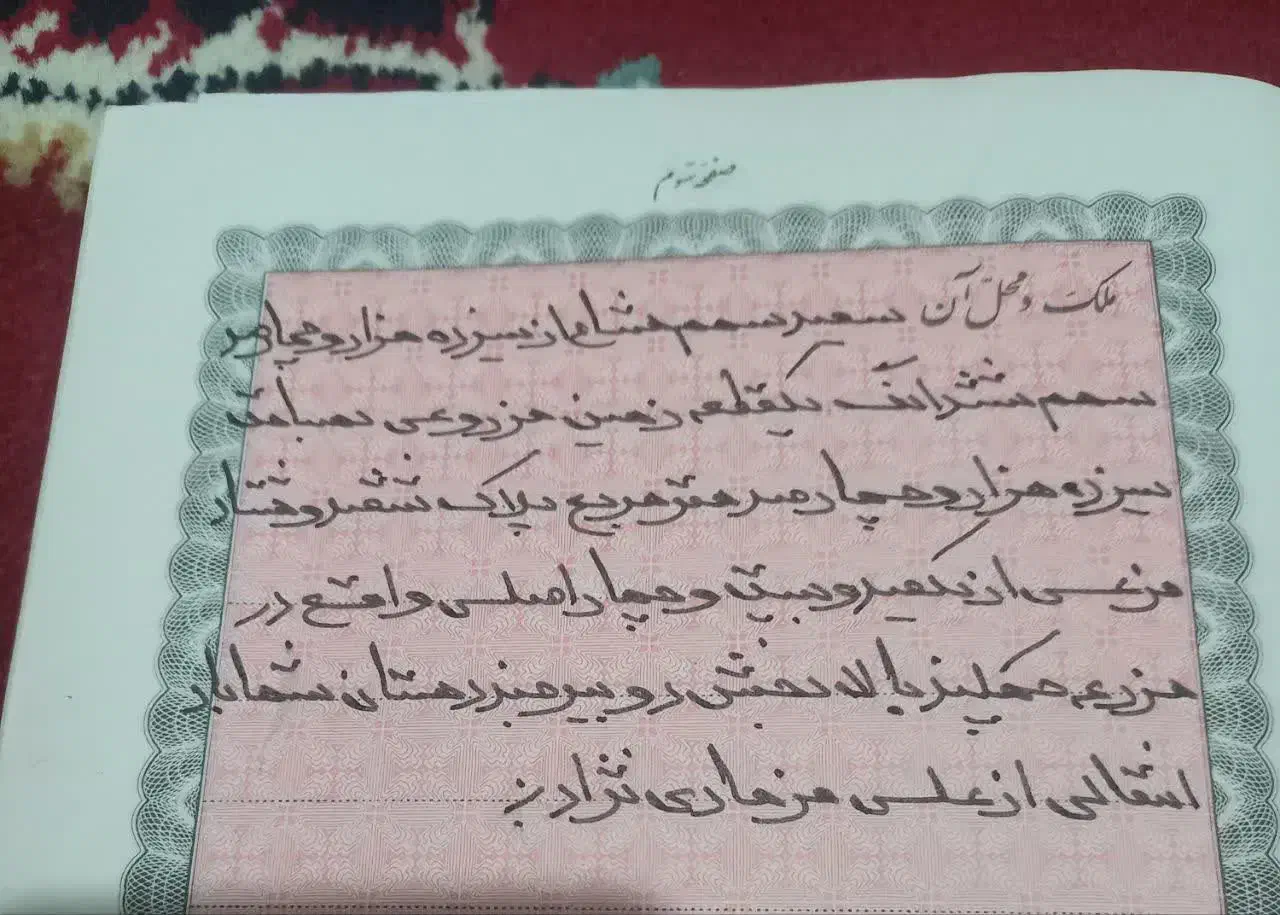 صفحهٔ سوم
ملک و محل آن سیصد سهم مشاع از سیزده هزار و چهارصد
سهم ششدانگ یکقطعه زمین مزروعی بمساحت
سیزده هزار و چهارصد متر مربع پلاک ششصد و هشتاد
فرعی از یکصد و بیست و چهار اصلی واقع در
مزرعه بالا بخش دو بیرجند دهستان شهاباد
انتقالی از علی مزهاری نژاد